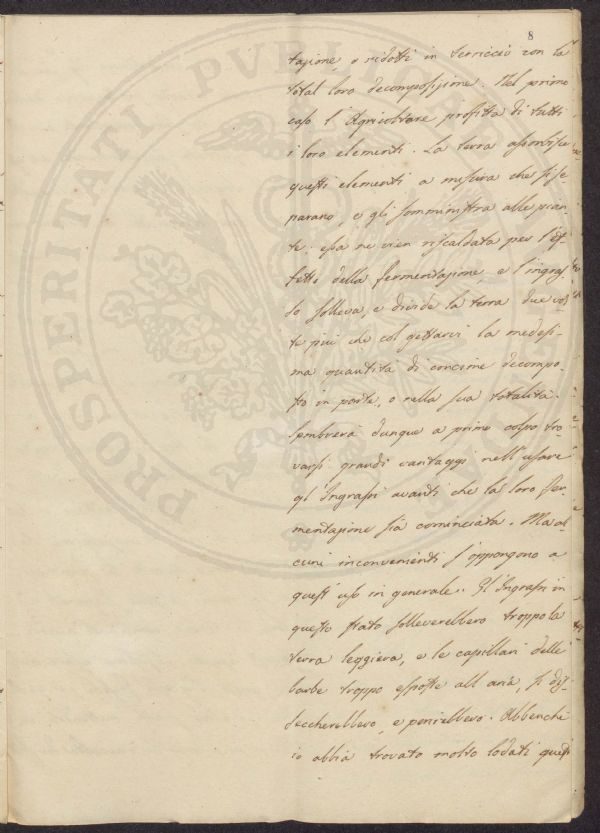 8
tazione, o ridotti in terriccio con la
total loro decomposizione. Nel primo
caso l'Agricoltore profitta di tutti
i loro elementi. La terra assorbisce
questi elementi a misura che si se-
parano, e gli somministra alle pian-
te: essa ne vien riscaldata per l'ef-
fetto della fermentazione, e l'ingras-
so solleva, e divide la terra due vol-
te più che col gettarvi la medesi-
ma quantità di concime decompo-
sto in parte, o nella sua totalità.
Sembrerà dunque a primo colpo tro-
varsi grandi vantaggi nell'usare
gl'Ingrassi avanti che la loro fer-
mentazione sia cominciata. Ma al-
cuni inconvenienti s'oppongono a
quest'uso in generale. Gl'Ingrassi in
questo stato solleverebbero troppo la
terra leggiera, e le capillari delle
barbe troppo esposte all'aria, si dis-
seccherebbero, e perirebbero. Abbenchè
io abbia trovato molto lodati questi
PROSPERITATI PVBLICAE